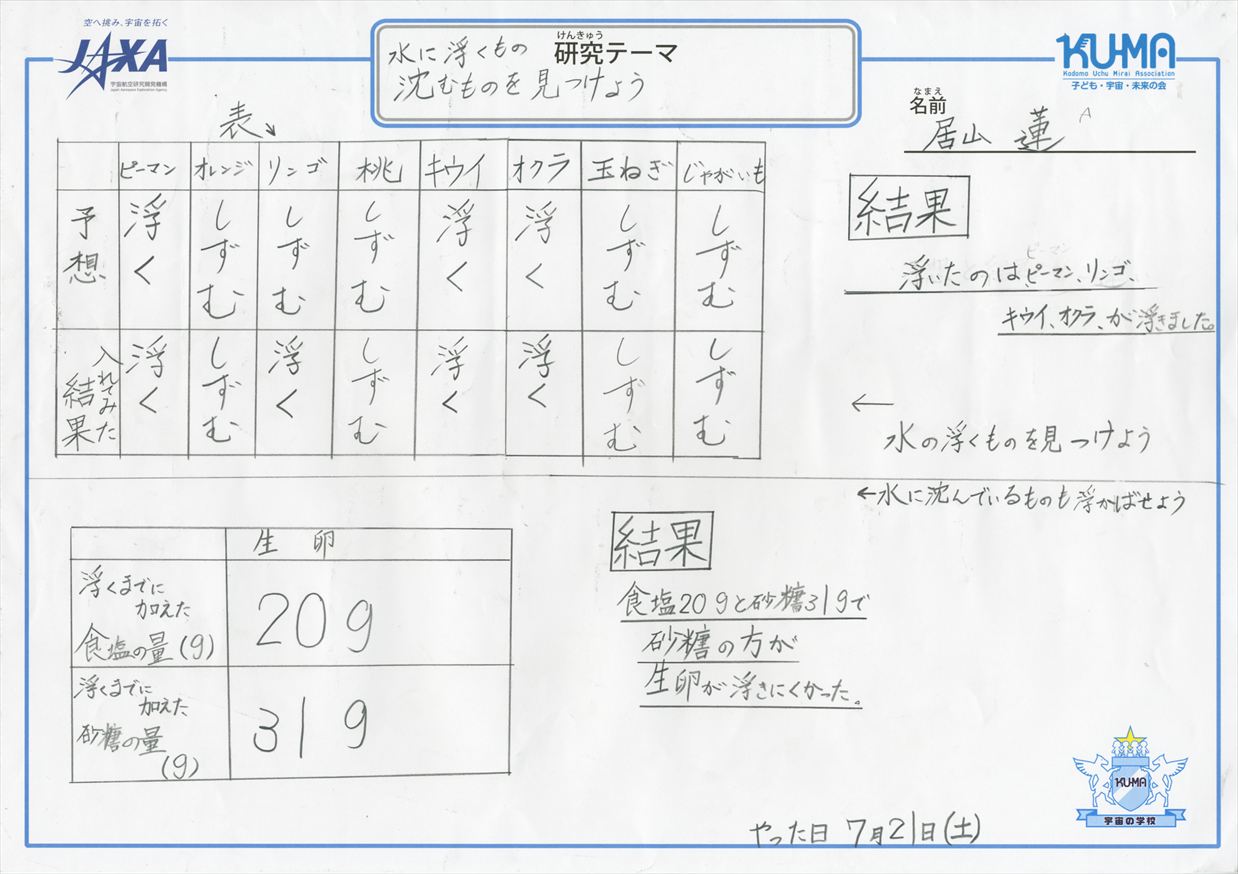 空へ挑み、宇宙を拓く
JAXA
宇宙航空研究開発機構
Japan Aerospace Exploration Agency
けんきゅう
研究テーマ
水に浮くもの
沈むものを見つけよう
KU-MA
Kodomo Uchu Mirai Association
子ども・宇宙・未来の会
なまえ
名前
居山 蓮
A
表
ピーマン オレンジ リンゴ 桃 キウイ オクラ 玉ねぎ じゃがいも
予想 浮く しずむ しずむ しずむ 浮く 浮く しずむ しずむ
入れてみた結果 浮く しずむ 浮く しずむ 浮く 浮く しずむ しずむ
結果
浮いたのは、ピーマン、リンゴ、
キウイ、オクラ、が浮きました。
← 水の浮くものを見つけよう
←水に沈んでいるものも浮かばせよう
生卵
浮くまでに
加えた
食塩の量(g)
20g
浮くまでに
加えた
砂糖の量
(g)
31g
結果
食塩20gと砂糖31gで
砂糖の方が
生卵が浮きにくかった。
KU-MA
宇宙の学校
やった日 7月21日(土)